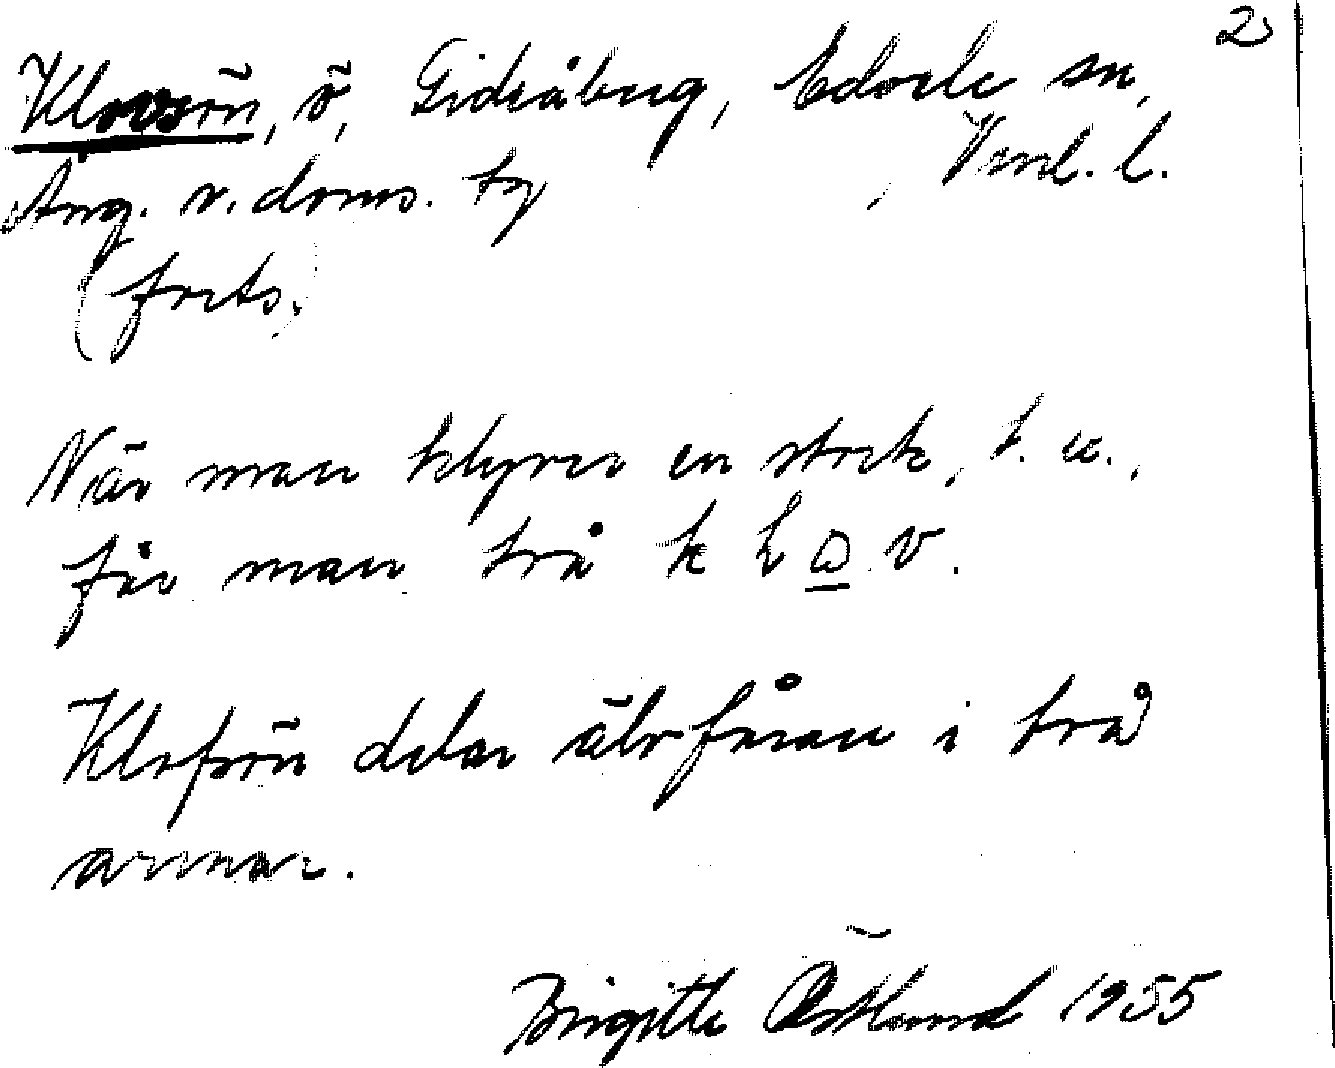 2
Klovsön, ö, Gideåberg, Edsele sn,
Ång. v. doms. tg , Vnl. l.
(forts.)
När man klyver en stock, t. ex.,
får man två k l o v.
Klofsön delar älvfåran i två
armar.
Birgitta Östlund 1955